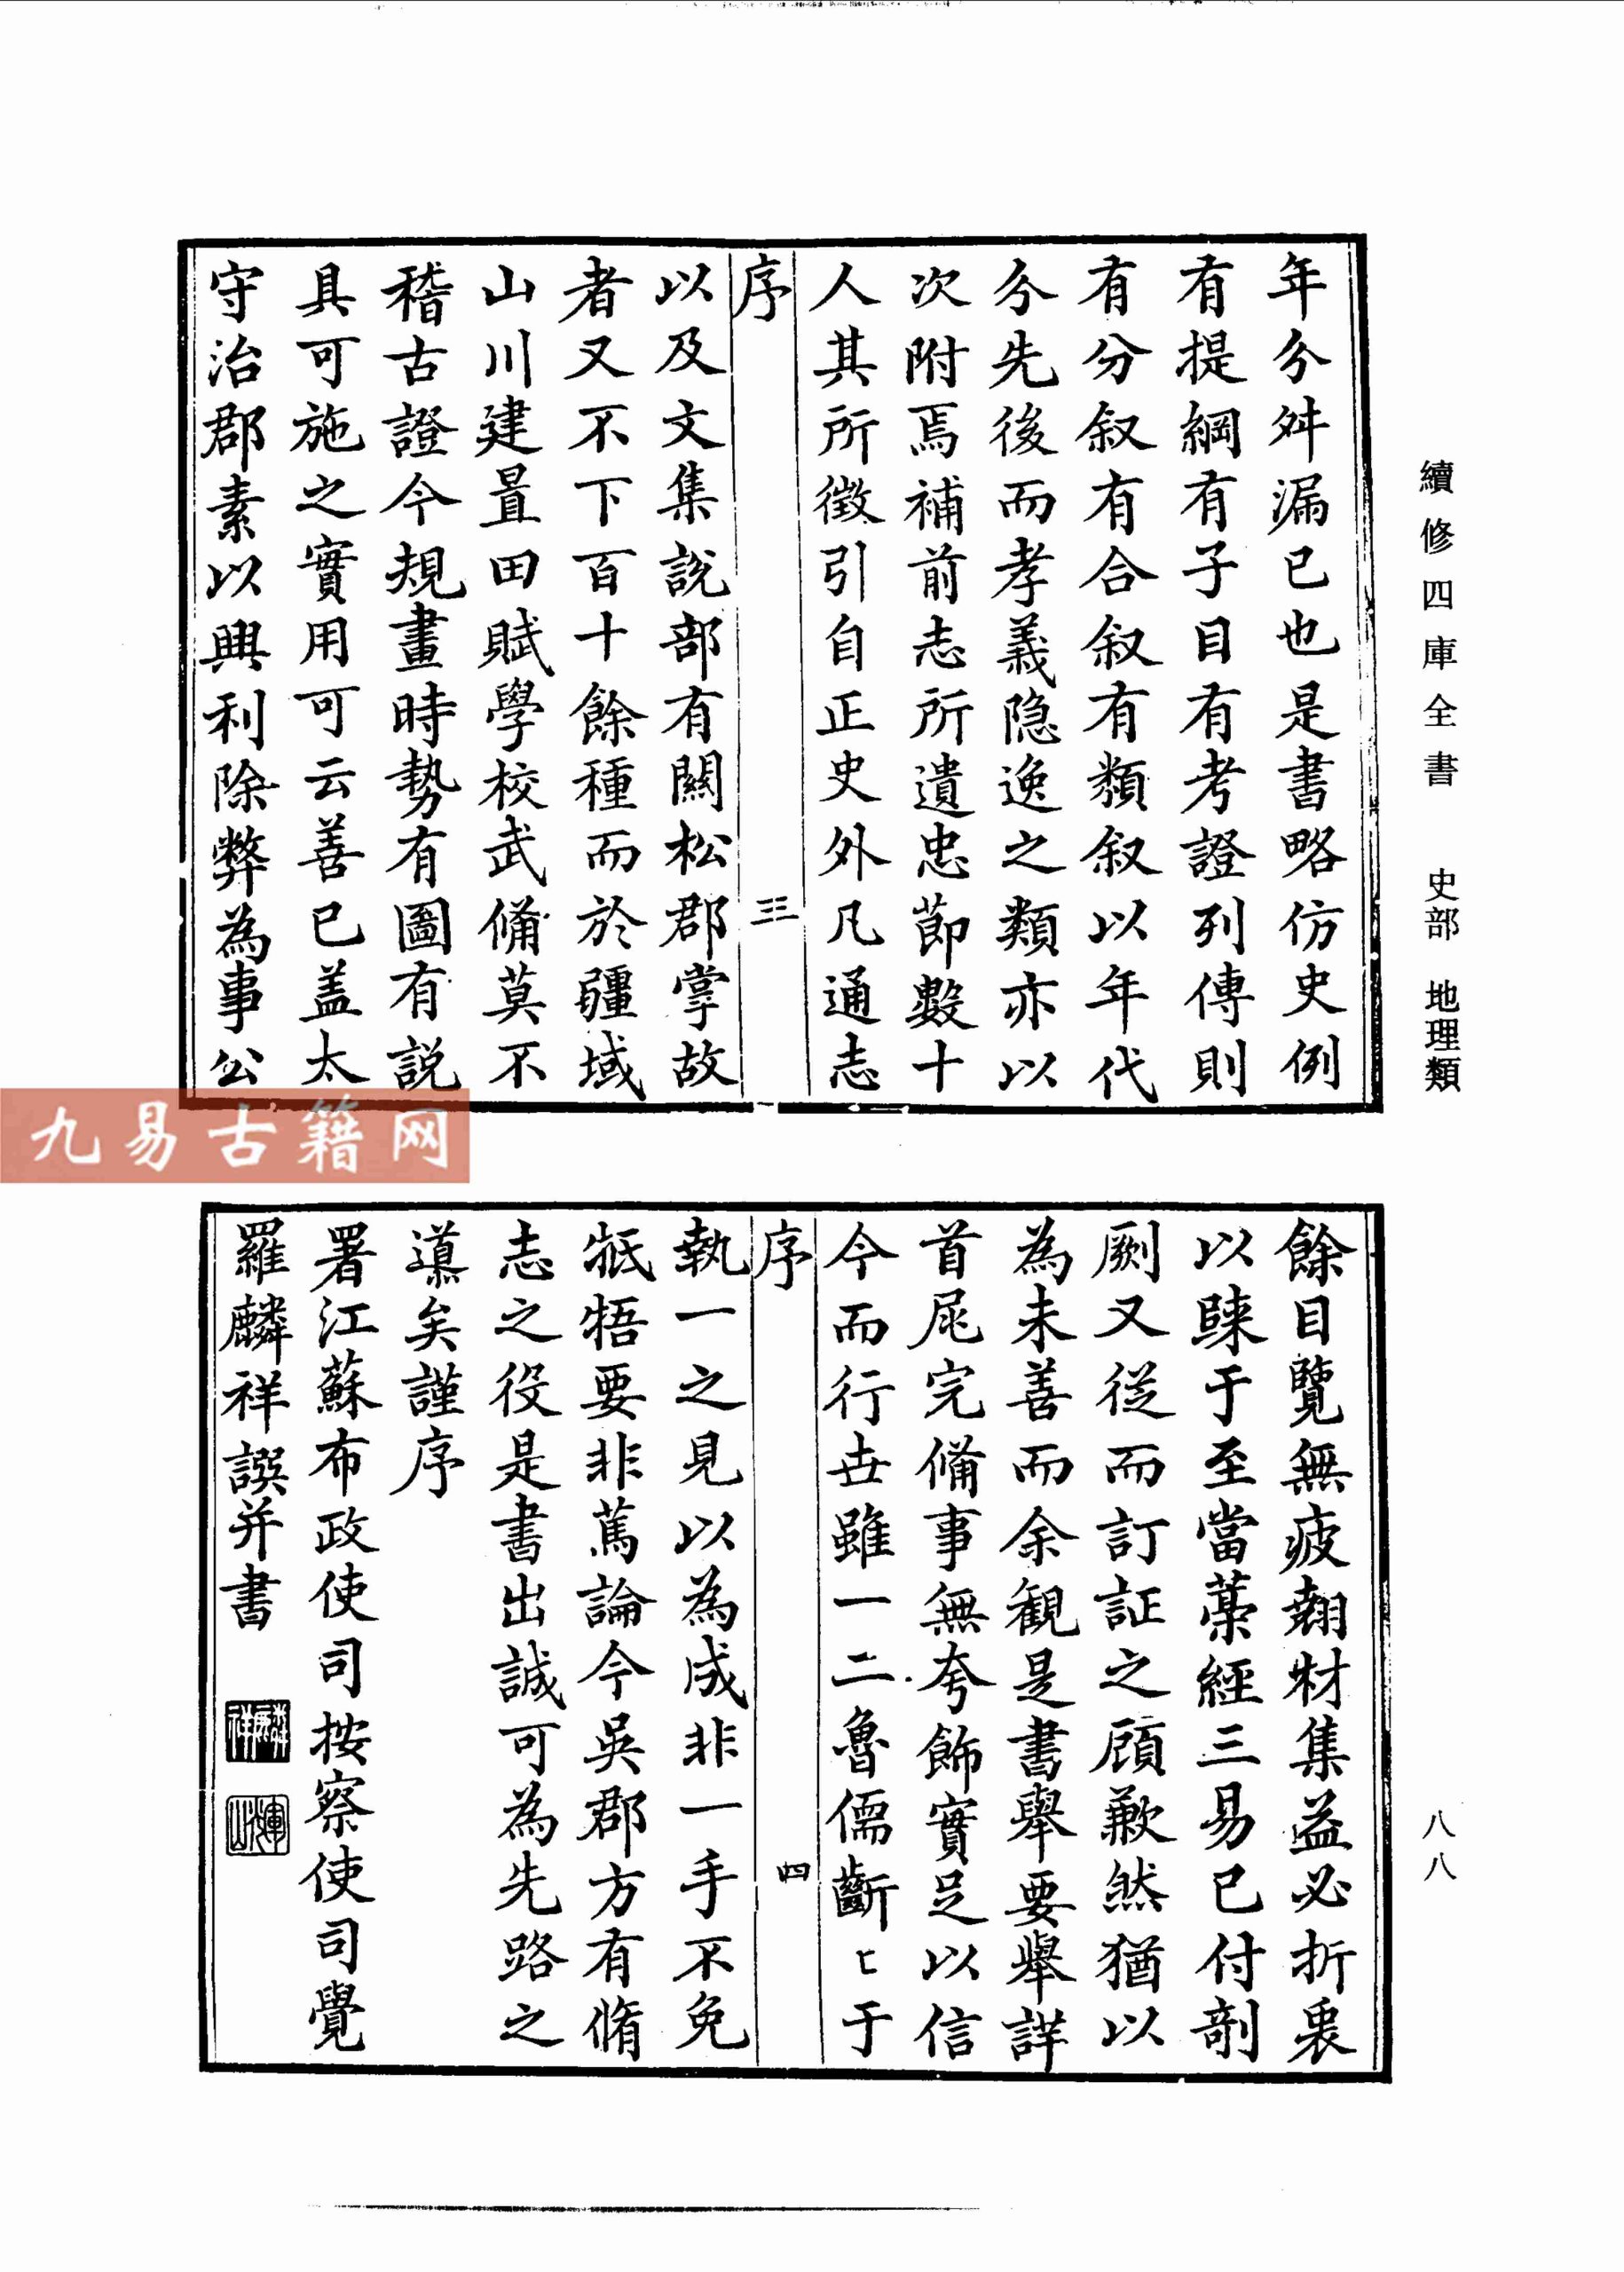 續修四庫全書 史部 地理類
年分舛漏已也是書略仿史例
有提綱有子目有考證列傳則
有分叙有合叙有類叙以年代
分先後而孝義隱逸之類亦以
次附焉補前志所遺忠節數十
人其所徵引自正史外凡通志
序 三
以及文集說部有關松郡掌故
者又不下百十餘種而於疆域
山川建置田賦學校武備莫不
稽古證今規畫時勢有圖有說
具可施之實用可云善已盖太
守治郡素以興利除弊為事公
餘目覽無疲翹材集益必折衷
以歸于至當藁經三易已付剖
劂又從而訂証之顧歉然猶以
為未善而余観是書舉要舉詳
首尾完備事無夸飾實足以信
今而行世雖一二魯儒齗〻于
序 四
執一之見以為成非一手不免
牴牾要非篤論今吳郡方有脩
志之役是書出誠可為先路之
導矣謹序
署江蘇布政使司按察使司覺
羅麟祥譔并書
麟祥
八八
九易古籍网